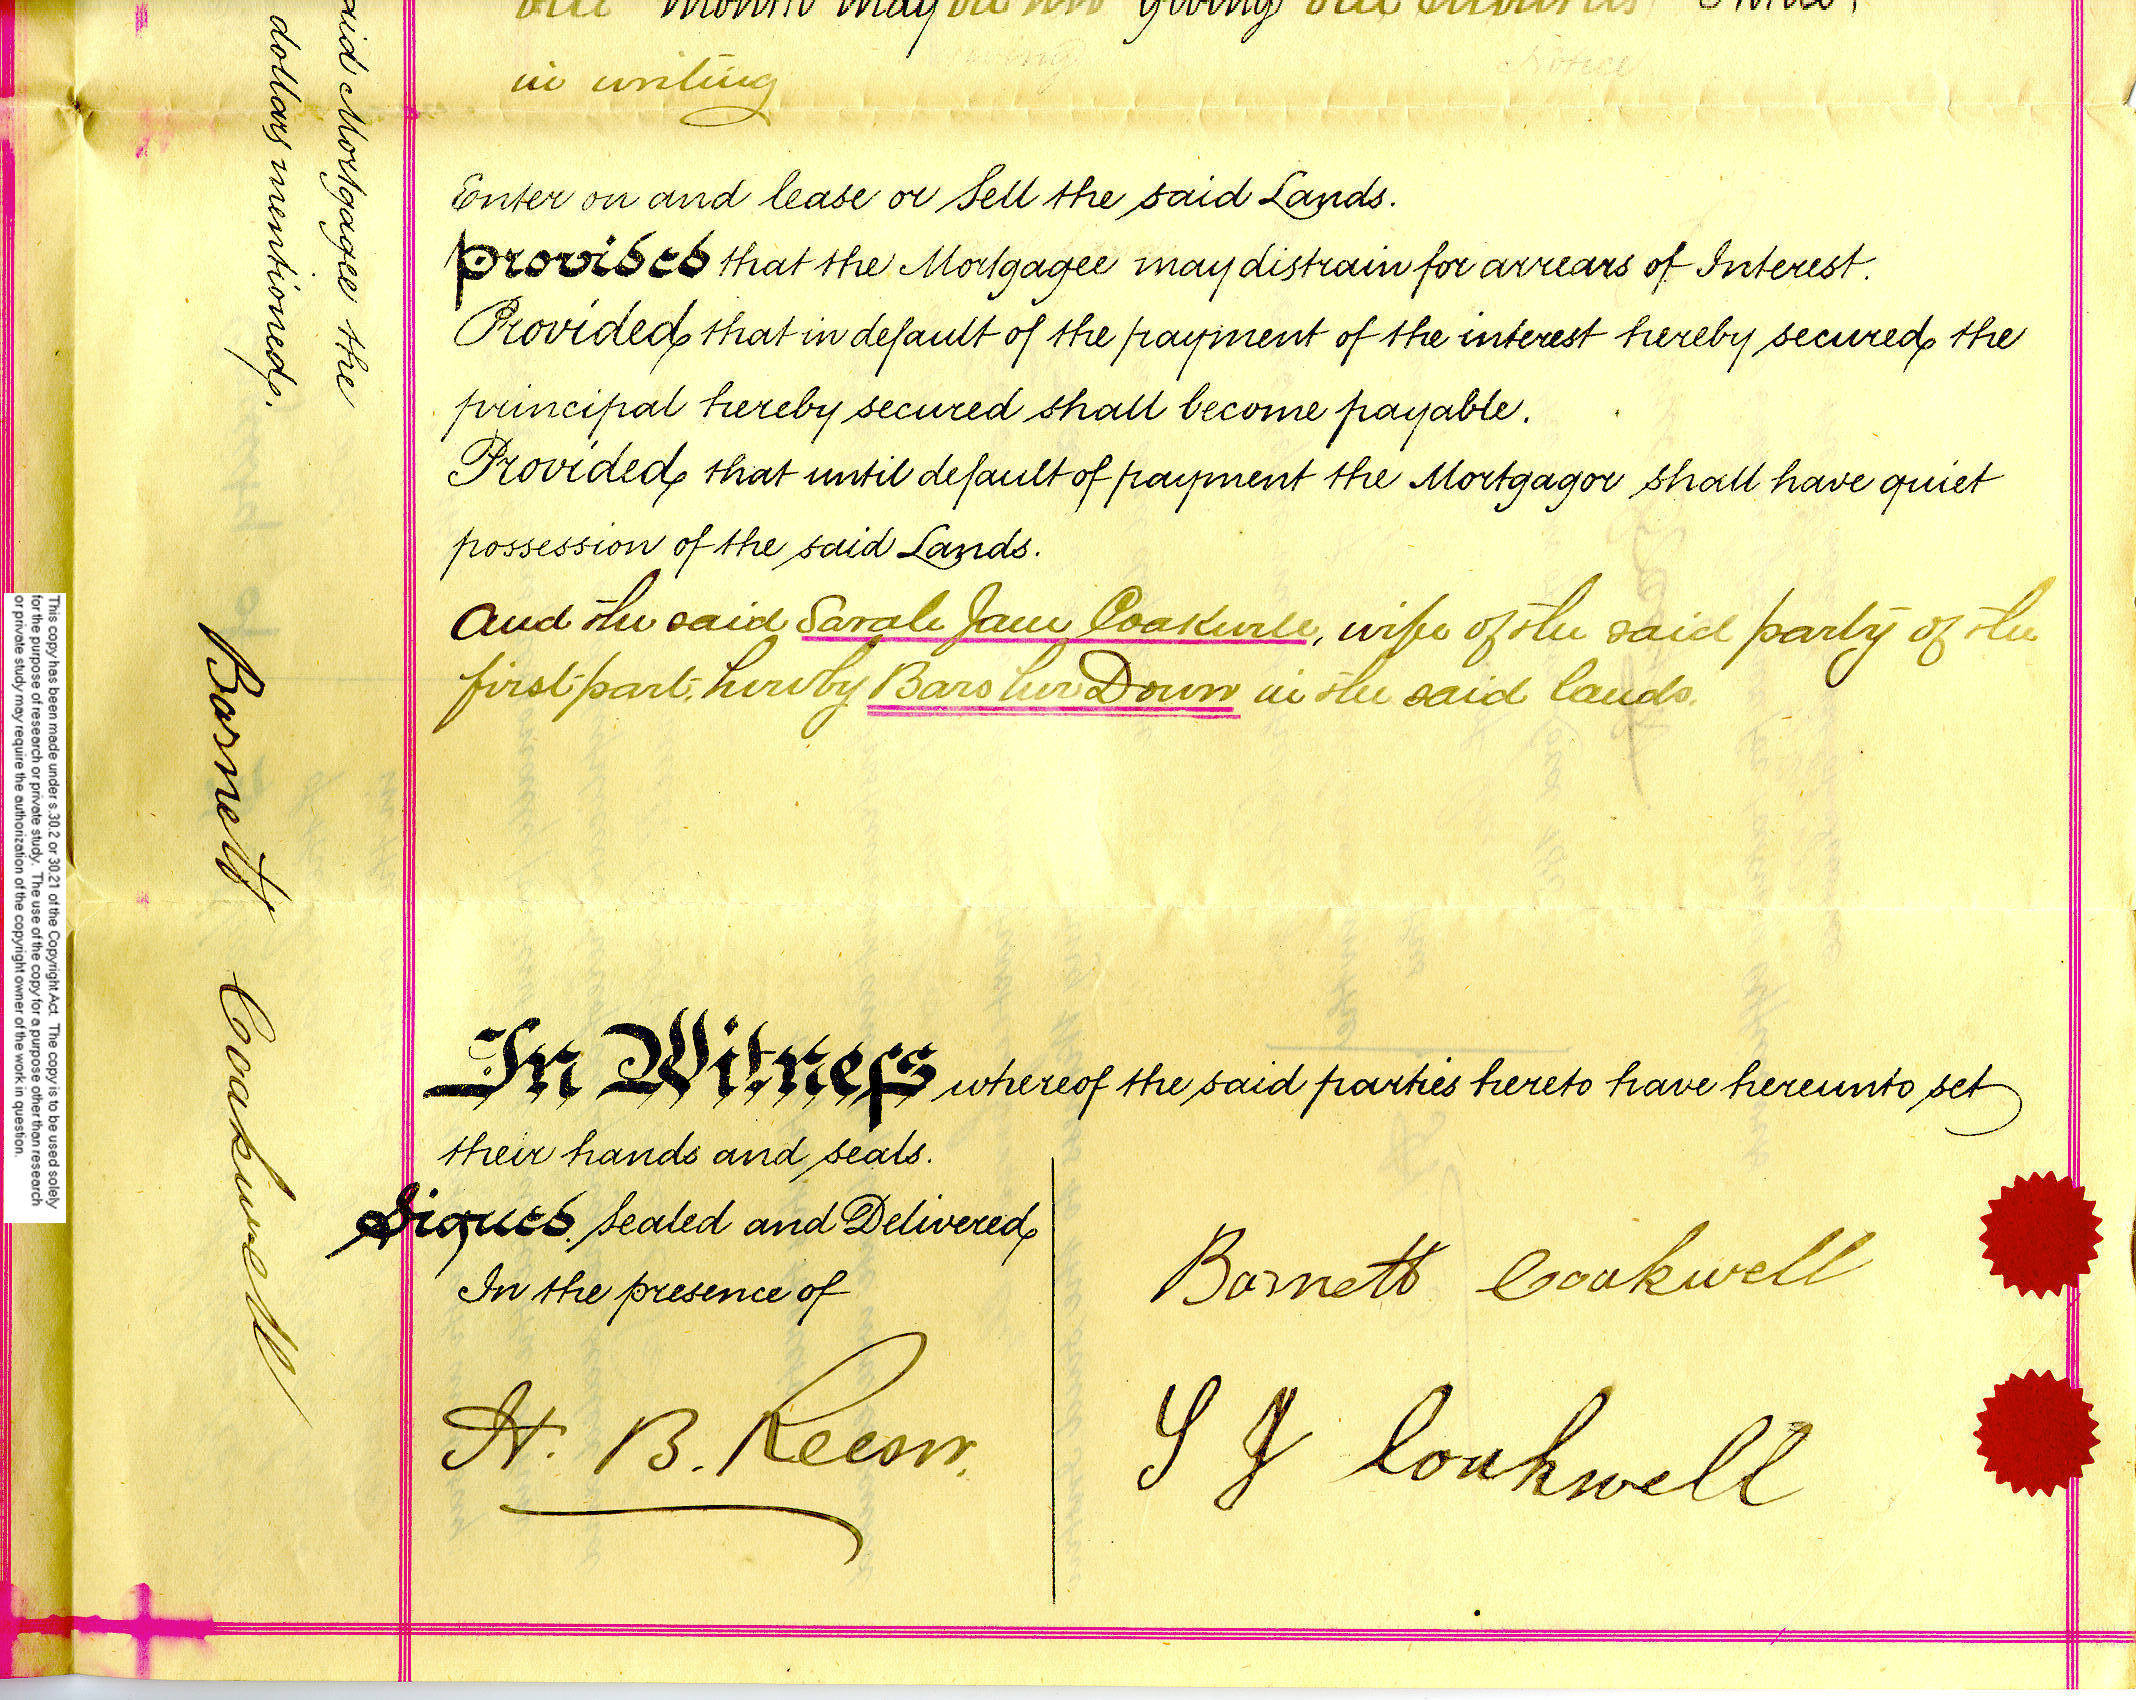 one month may on giving one months Notice,
in writing
Enter on and lease or Sell the said Lands.
Provided that the Mortgagee may distrain for arrears of Interest.
Provided that in default of the payment of the interest hereby secured the
principal hereby secured shall become payable.
Provided that until default of payment the Mortgagor shall have quiet
possession of the said Lands.
And the said Sarah Jane Coakwell, wife of the said party of the
first part, hereby Bars her Dower in the said lands.
In Witness whereof the said parties hereto have hereunto set
their hands and seals.
Signed, Sealed and Delivered
In the presence of
H. B. Reesor.
Barnett Coakwell
S J Coakwell
said Mortgagee the
dollars mentioned.
Barnett Coakwell
This copy has been made under s.30.2 or 30.21 of the Copyright Act. The copy is to be used solely
for the purpose of research or private study. The use of the copy for a purpose other than research
or private study may require the authorization of the copyright owner of the work in question.